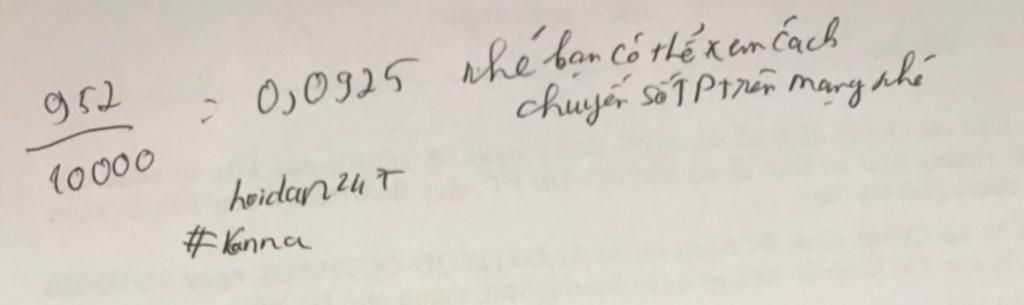 952/10000 = 0,0925 nhé bạn có thể xem cách
chuyển số TP trên mạng nhé
hoidan24T
#Kanna